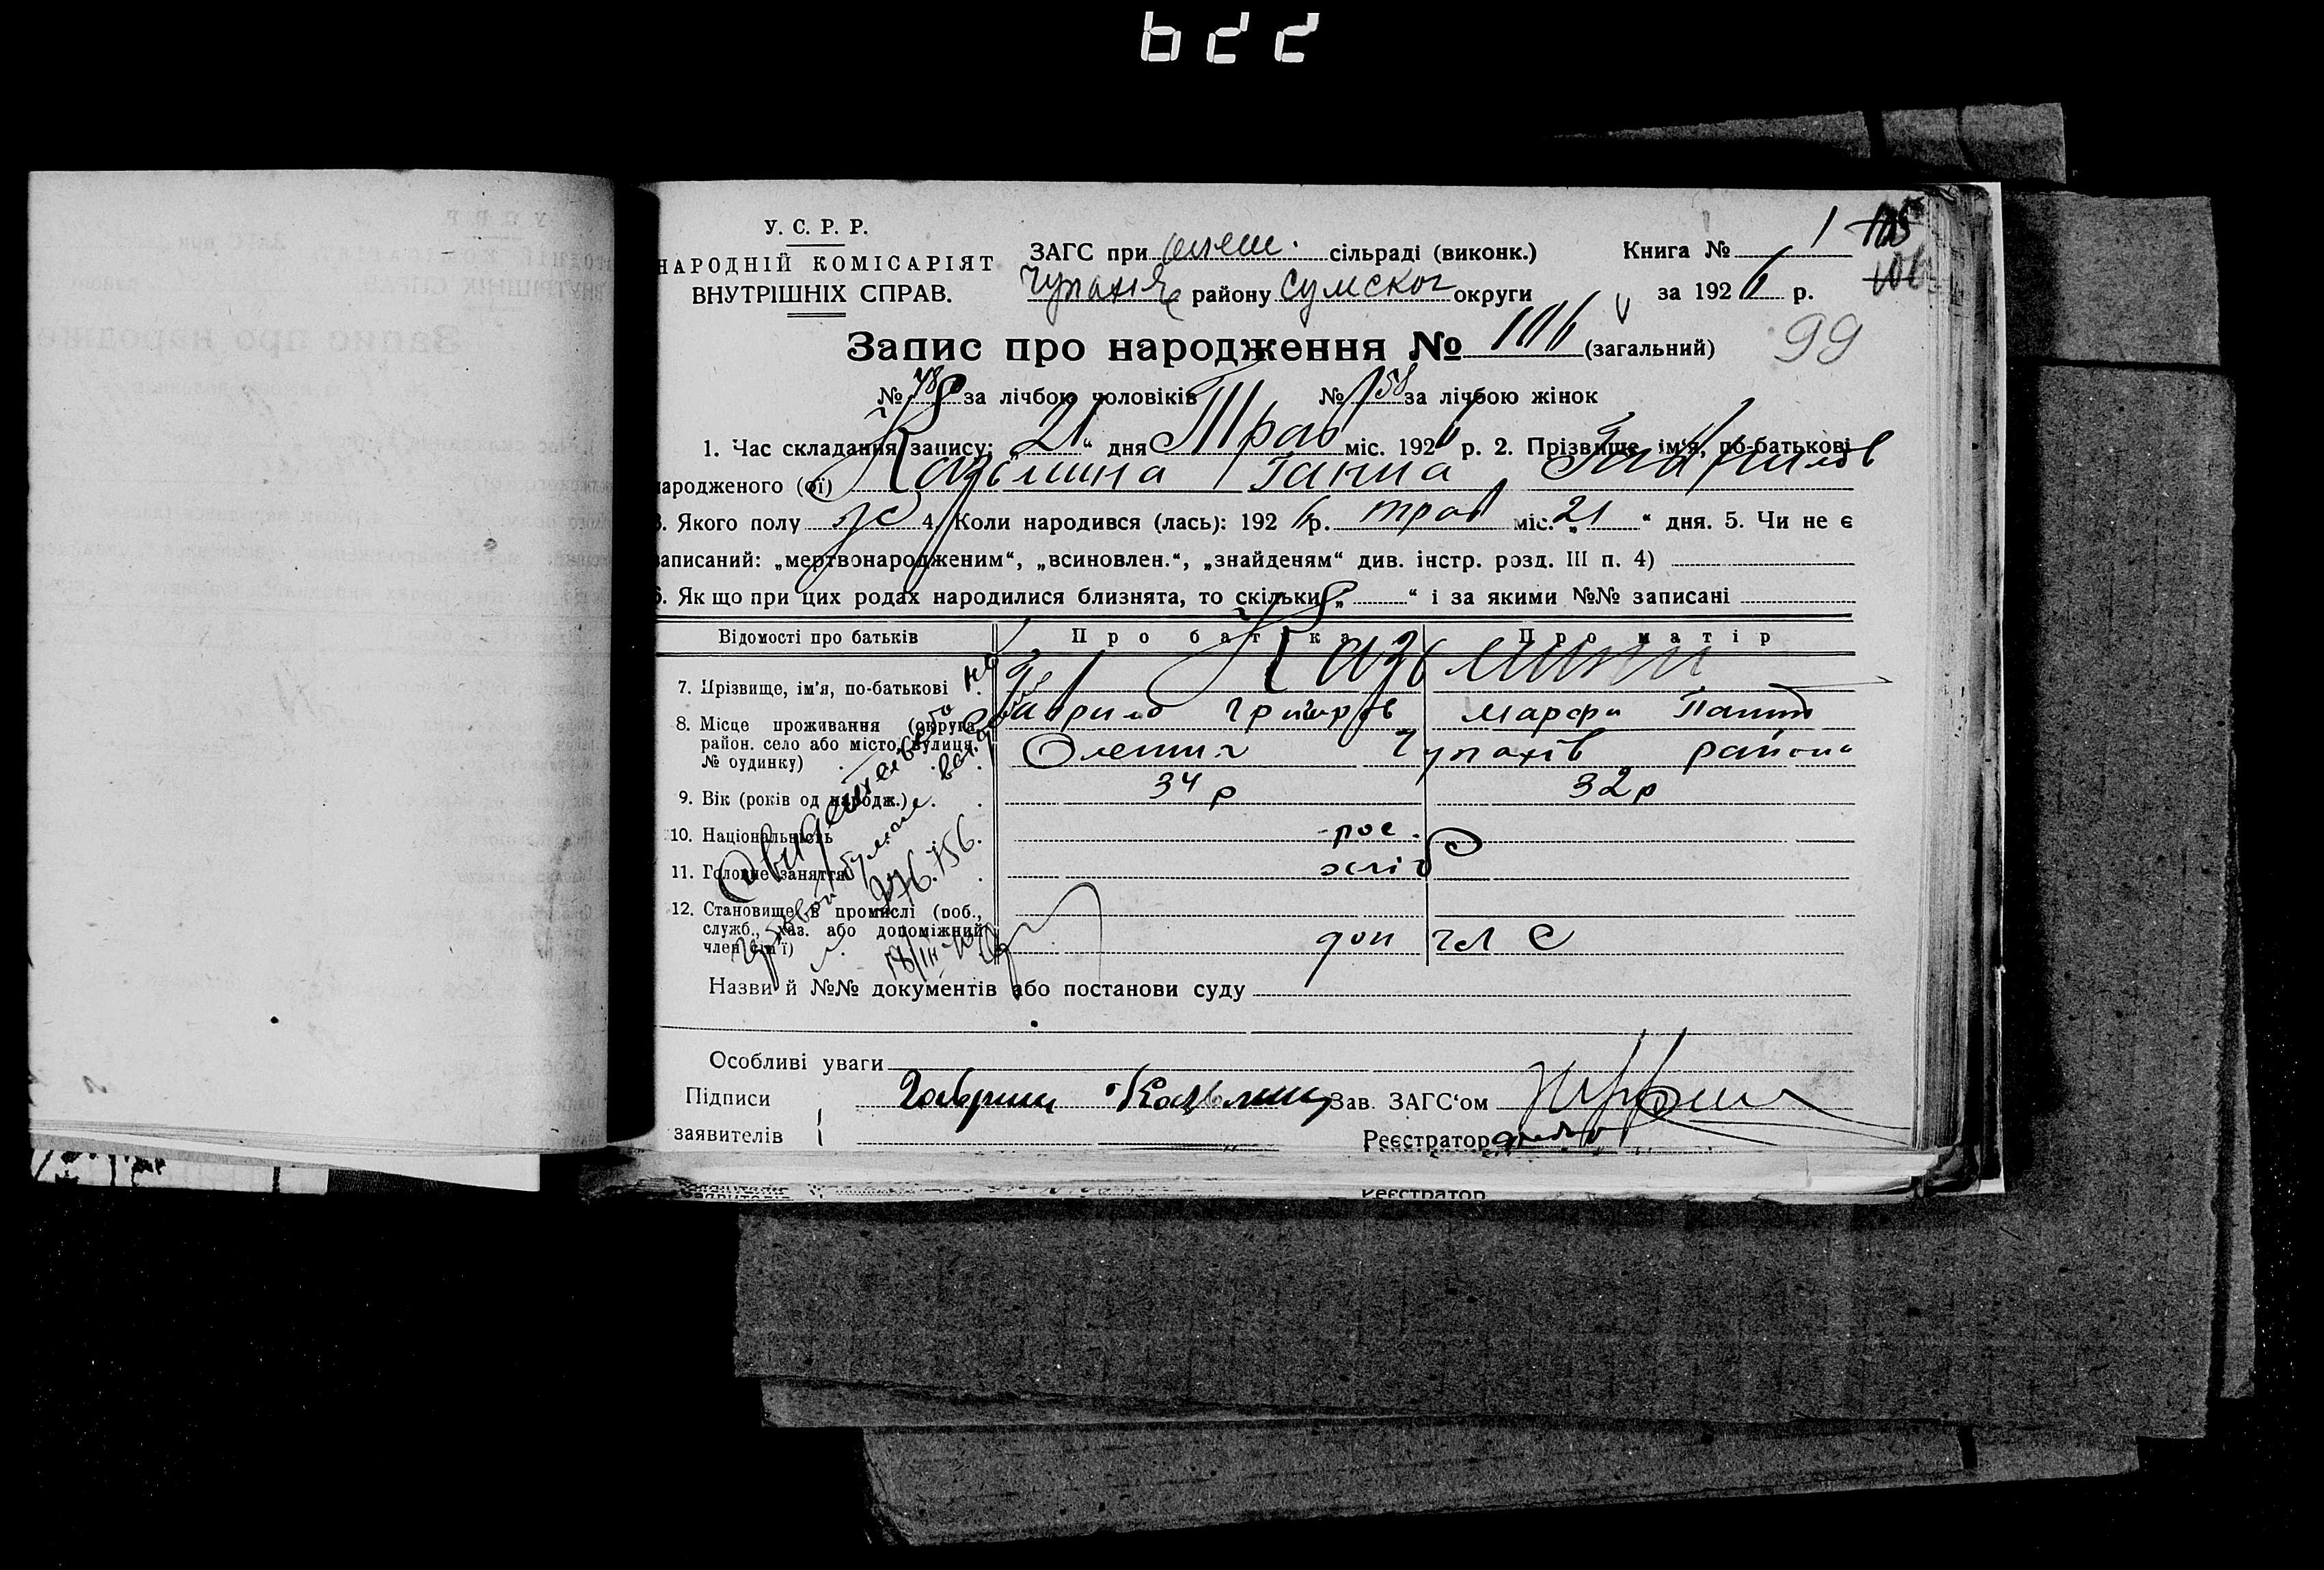 У. С. Р. Р.
НАРОДНІЙ КОМІСАРІЯТ
ВНУТРІШНІХ СПРАВ.
ЗАГС при олеш. сільраді (виконк.)
району Сумског округи
Книга № 1
105
за 1926 р.
106
Запис про народження № 106 (загальний)
99
№ 48 за лічбою чоловіків № 58 за лічбою жінок
1. Час складання запису: „21“ дня Трав міс. 1926 р. 2. Прізвище, ім'я, по-батькові
народженого (ої) Казьмина Ганна Гаврилов
3. Якого полу ж 4. Коли народився (лась): 1926 р. трав міс. „21“ дня. 5. Чи не є
записаний: „мертвонародженим“, „всиновлен.“, „знайденям“ див. інстр. розд. III п. 4)
6. Якщо при цих родах народилися близнята, то скільки „ “ і за якими №№ записані
Відомості про батьків Про батька Про матір
7. Прізвище, ім'я, по-батькові Казьмини
Гаврило Григоров Марфа
8. Місце проживання (округа, район. село або місто, вулиця, № будинку) Олешня Чупахів района
9. Вік (років од народж.) 34 р 32 р
10. Національність рос.
11. Головне заняття хліб
12. Становище в промислі (роб., служб., хаз. або допоміжний член сім'ї) доп чл С
Свидетельство
976.756.
Назви й №№ документів або постанови суду
Особливі уваги
Підписи Гаврил Казьмин Зав. ЗАГС'ом
заявителів Реєстратор
Реєстратор